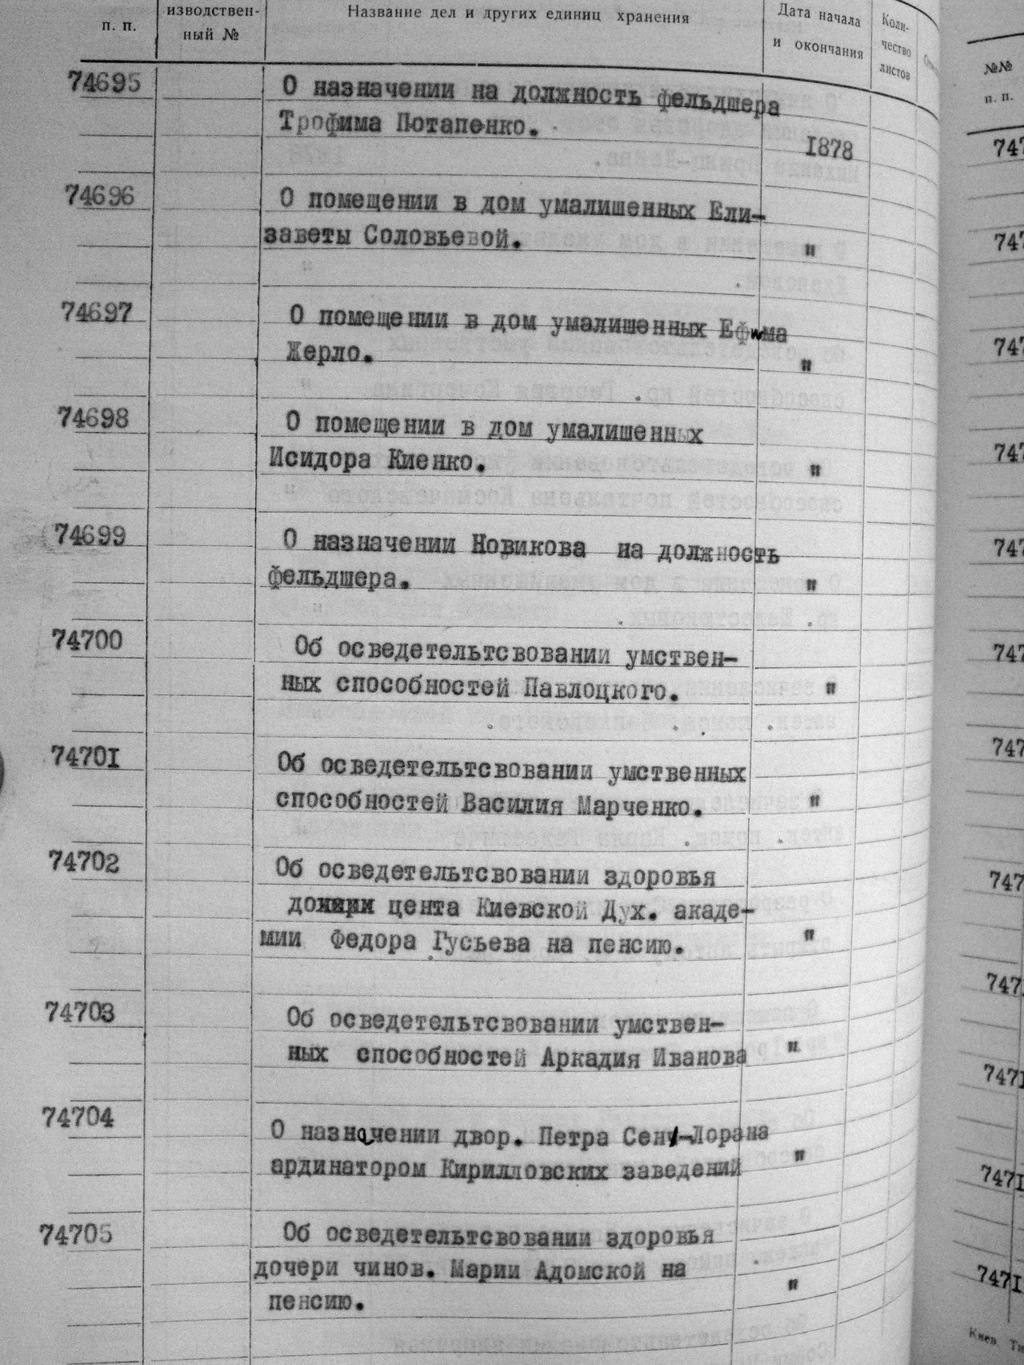 п. п.
изводствен-
ный №
Название дел и других единиц хранения
Дата начала
и окончания
Коли-
чество
листов
74695 О назначении на должность фельдшера
Трофима Потапенко. 1878
74696 О помещении в дом умалишенных Ели-
заветы Соловьевой. "
74697 О помещении в дом умалишенных Ефима
Жерло. "
74698 О помещении в дом умалишенных
Исидора Киенко. "
74699 О назначении Новикова на должность
фельдшера. "
74700 Об осведетельтсвовании умствен-
ных способностей Павлоцкого. "
74701 Об осведетельтсвовании умственных
способностей Василия Марченко. "
74702 Об осведетельтсвовании здоровья
доцента Киевской Дух. акаде-
мии Федора Гусьева на пенсию. "
74703 Об осведетельтсвовании умствен-
ных способностей Аркадия Иванова "
74704 О назначении двор. Петра Сент-Лорана
ардинатором Кирилловских заведений "
74705 Об осведетельтсвовании здоровья
дочери чинов. Марии Адомской на
пенсию. "
№№
п. п.
747
747
747
747
747
747
747
747
747
7471
7471
7471
Киев